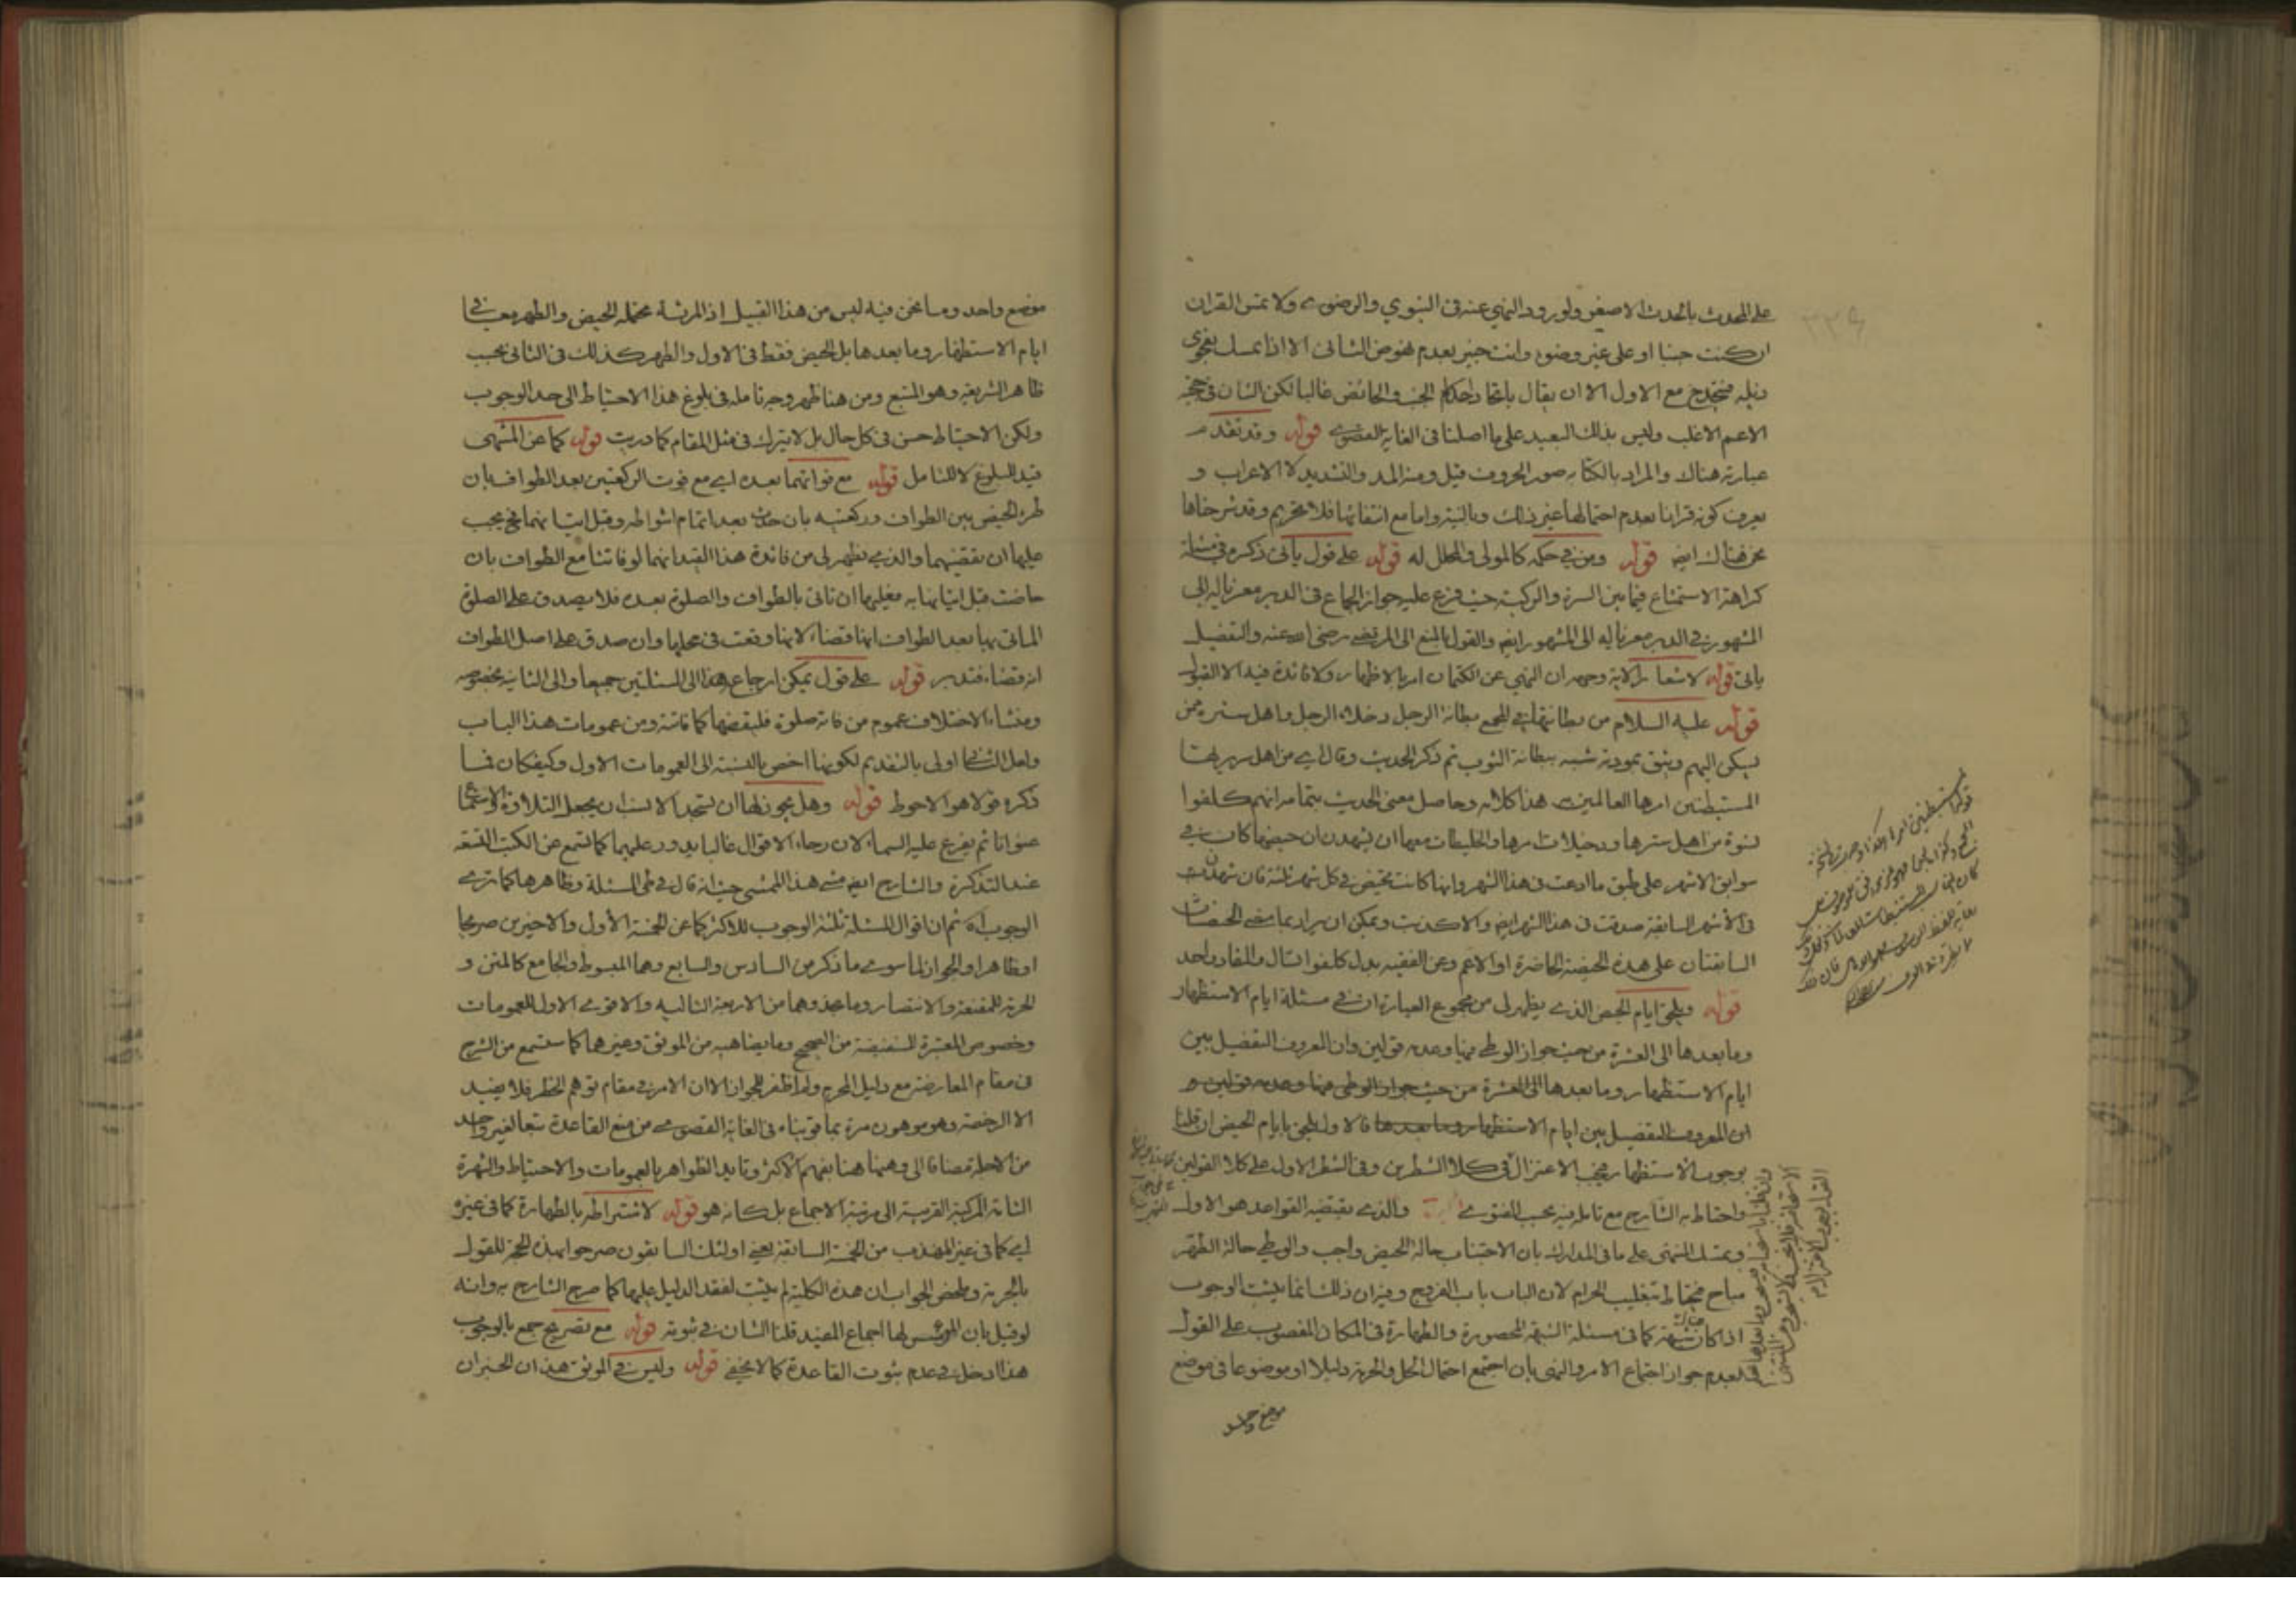 على المحدث بالحدث الاصغر ولورود النهي عنه في النبوي والرضوي ولا تمس القران
ان كنت جنبا او على غير وضوء وانت خبير بعدم نهوض الثاني الا اذا تمسك بفحوى
دليله فتخدج مع الاول الا ان يقال باتحاد احكام الجنب والحائض غالبا لكن الشان في حجية
الاعم الاغلب وليس بذلك البعيد على ما اصلنا في الغاية القصوى قوله وقد تقدم
عبارته هناك والمراد بالكتابة صور الحروف قيل ومنه المد والتشديد لا الاعراب و
يعرف كونه قرانا بعدم احتمالها غير ذلك وبالنية واما مع انتفائها فلا تحريم وقد شرحناها
نحن هناك ايضا قوله ومن في حكمه كالمولى والمحلل له قوله على قول ياتي ذكره في مسئلة
كراهة الاستمتاع فيما بين السرة والركبة حيث فرع عليه جواز الجماع في الدبر معزيا له الى
المشهور في الدبر معزيا له الى المشهور ايضا والقول بالمنع الى المرتضى رضي الله عنه والتفصيل
ياتي قوله لاشعار الاية وجهه ان النهي عن الكتمان امر بالاظهار ولا فائدة فيه الا القبول
قوله عليه السلام من بطانتها في المجمع بطانة الرجل دخلاء الرجل واهل سره ممن
يسكن اليهم ويثق بمودته شبه ببطانة الثوب ثم ذكر الحديث وقال اي من اهل سريرتها
المستبطنين امرها العالمين به هذا كلامه وحاصل معنى الحديث بتمامه انهم كلفوا
نسوة من اهل سترها ودخيلات امرها والخليطات معها ان يشهدن ان حيضها كان في
سوابق الاشهر على طبق ما ادعت في هذا الشهر وانها كانت تحيض في كل شهر ثلثة فان شهدن
في الاشهر السابقة صدقت في هذا الشهر ايضا والا كذبت ويمكن ان يراد بما مضى الحيضتان
السابقتان على هذه الحيضة الحاضرة او الاعم وعن الفقيه بدل كلفوا اسئال والمفاد واحد
قوله ويلحق ايام الحيض الذي يظهر لي من مجموع العبارة ان في مسئلة ايام الاستظهار
وما بعدها الى العشرة من حيث جواز الوطي فيها وعدمه قولين وان المعروف التفصيل بين
ايام الاستظهار وما بعدها الى العشرة من حيث جواز الوطي فيها وعدمه قولين و
ان المعروف التفصيل بين ايام الاستظهار وما بعدها فالاول يلحق بايام الحيض ان قلنا
بوجوب الاستظهار فيجب الاعتزال في كلا الشطرين وفي الشطر الاول على كلا القولين
واحتاط به الشارح مع تامله فيه بحسب الفتوى والذي يقتضيه القواعد هو الاول
وتمسك المنتهى على ما في المدارك بان الاجتناب حالة الحيض واجب والوطي حالة الطهر
مباح فيحتاط بتغليب الحرام لان الباب باب الفروج وفيه ان ذلك انما يثبت الوجوب
اذا كان شبهة كما في مسئلة الشبهة المحصورة والطهارة في المكان المغصوب على القول
بعدم جواز اجتماع الامر والنهي بان اجتمع احتمال الحل والحرمة دليلا او موضوعا في موضع
موضع واحد
موضع واحد وما نحن فيه ليس من هذا القبيل اذ المرئة محتملة الحيض والطهر معا في
ايام الاستظهار وما بعدها بل الحيض فقط في الاول والطهر كذلك في الثاني بحسب
ظاهر الشريعة وهو المتبع ومن هنا ظهر وجه تامله في بلوغ هذا الاحتياط الى حد الوجوب
ولكن الاحتياط حسن في كل حال بل لا يترك في مثل المقام كما دريت قوله كما عن المنتهى
قيد للبلوغ لا للتامل قوله مع فواتهما بعده اي مع فوت الركعتين بعد الطواف بان
طرء الحيض بين الطواف وركعتيه بان حدث بعد اتمام اشواطه وقبل اتيانهما فح يجب
عليها ان تقضيهما والذي يظهر لي من فائدة هذا القيد انهما لو فاتتا مع الطواف بان
حاضت قبل اتيانها به فعليها ان تاتي بالطواف والصلوة بعده فلا يصدق على الصلوة
الماتي بها بعد الطواف انها قضاء لانها وقعت في محلها وان صدق على اصل الطواف
انه قضاء فتدبر قوله على قول يمكن ارجاع هذا الى المسئلتين جميعا والى الثانية بخصوصه
ومنشاء الاختلاف عموم من فاته صلوة فليقضها كما فاتته ومن عمومات هذا الباب
ولعل الثاني اولى بالتقديم لكونها اخص بالنسبة الى العمومات الاول وكيف كان فما
ذكره قولا هو الاحوط قوله وهل يجوز لها ان تسجد الانسب ان يجعل التلاوة والاستماع
عنوانا ثم يفرع عليه السماع لان رحاء الاقوال غالبا يدور عليهما كما تسمع عن الكتب التسعة
عند التذكرة والشارح ايضا مشى هذا الممشى حيث انه قال في طي المسئلة وظاهرها كما ترى
الوجوب اه ثم ان اقوال المسئلة ثلثة الوجوب للاكثر كما عن الخمسة الأول والاخيرين صريحا
او ظاهرا والجواز لما سوى ما ذكر من السادس والسابع وهما المبسوط والجامع كالمتن و
الحرمة للمقنعة والانتصار وما حذوهما من الاربعة التالية والاقوى الاول للعمومات
وخصوص المعتبرة المستفيضة من الصحيح وما يضاهيه من الموثق وغيرهما كما ستسمع من الشرح
في مقام المعارضة مع دليل المحرم ولم اظفر للجواز الا ان الامر في مقام توهم الحظر فلا يفيد
الا الرخصة وهو موهون مرة بما قويناه في الغاية القصوى من منع القاعدة تبعا لغير واحد
من الاجلة مضافا الى وهنها هنا بفهم الاكثر وتايد الظواهر بالعمومات والاحتياط والشهرة
الثابتة المركبة القريبة الى مرتبة الاجماع بل كانه هو قوله لاشتراطه بالطهارة كما في غيره
اي كما في غير المهذب من الخمسة السابقة يعني اولئك السابقون صرحوا بهذه الحجة للقول
بالحرمة وملخص الجواب ان هذه الكلية لم يثبت لفقد الدليل عليها كما صرح الشارح به وانه
لو قيل بان المؤسس لها اجماع المفيد قلنا الشان في ثبوته قوله مع تصريح جمع بالوجوب
هذا ادخل في عدم ثبوت القاعدة كما لا يخفى قوله وليس في الموثق هذان الخبران